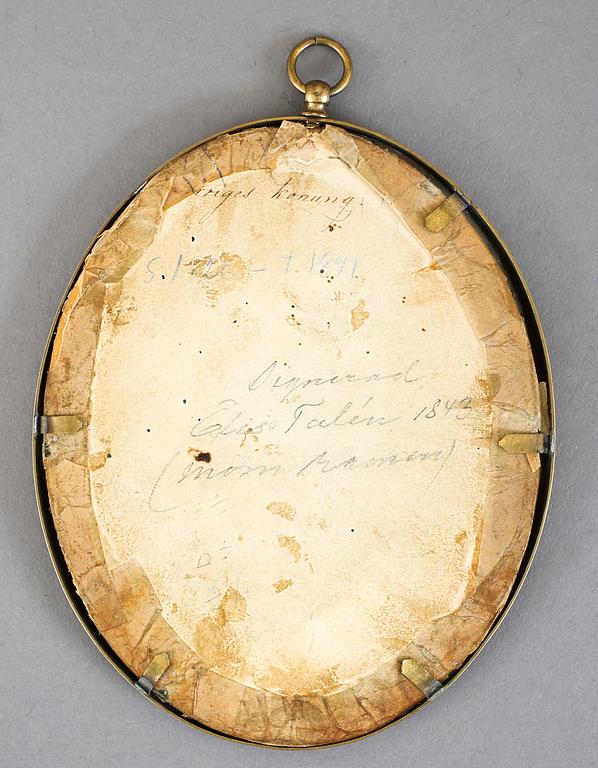 riges konung
1891
Signerad
Elise Talén 1843
(inom ramen)